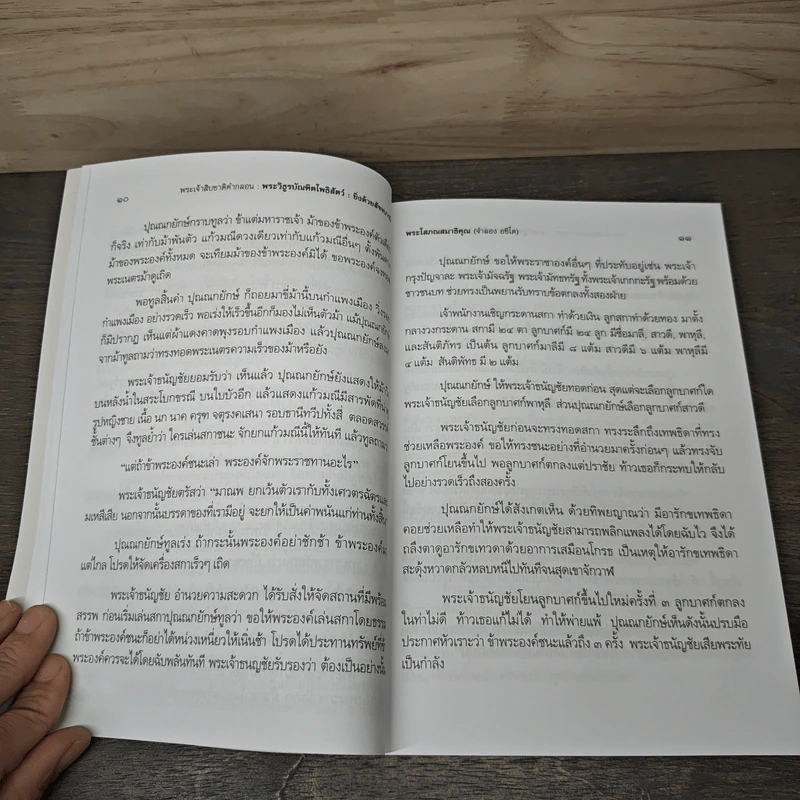 ๑๐
พระเจ้าสิบชาติคำกลอน : พระวิฐูรบัณฑิตโพธิสัตว์ : ยิ่งด้วยสัจจ
ปุณณกยักษ์กราบทูลว่า ข้าแต่มหาราชเจ้า ม้าของข้าพระองค์ตัวเดียว
ก็จริง เท่ากับม้าพันตัว แก้วมณีดวงเดียวเท่ากับแก้วมณีอื่นๆ ตั้งพัน
ม้าของพระองค์ทั้งหมด จะเทียมม้าของข้าพระองค์มิได้ ขอพระองค์จง
พระเนตรม้าดูเถิด
พอทูลสิ้นคำ ปุณณกยักษ์ ก็ถอยมาขี่ม้านี้บนกำแพงเมือง วิ่ง
กำแพงเมือง อย่างรวดเร็ว พอเร่งให้เร็วขึ้นอีกก็มองไม่เห็นตัวม้า แม้ปุณณกยักษ์
ก็มิปรากฏ เห็นแต่ผ้าแดงคาดพุงรอบกำแพงเมือง แล้วปุณณกยักษ์
จากม้าทูลถามว่าทรงทอดพระเนตรความเร็วของม้าหรือยัง
พระเจ้าธนัญชัยยอมรับว่า เห็นแล้ว ปุณณกยักษ์ยังแสดงให้ม้า
บนหลังน้ำในสระโบกขรณี บนใบบัวอีก แล้วแสดงแก้วมณีมีสารพัด
รูปหญิงชาย เนื้อ นก นาค ครุฑ จตุรงคเสนา รอบธานีทวีปทั้งสี่ ตลอดสวรรค์
ชั้นต่างๆ จึงทูลย้ำว่า ใครเล่นสกาชนะ จักยกแก้วมณีนี้ให้ทันที แล้วทูลถาม
“แต่ถ้าข้าพระองค์ชนะเล่า พระองค์จักพระราชทานอะไร”
พระเจ้าธนัญชัยตรัสว่า “มาณพ ยกเว้นตัวเรากับทั้งเศวตรฉัตร
มเหสีเสีย นอกจากนั้นบรรดาของที่เรามีอยู่ จะยกให้เป็นค่าพนันแก่ท่านทั้งสิ้น
ปุณณกยักษ์ทูลเร่ง ถ้ากระนั้นพระองค์อย่าชักช้า ข้าพระองค์
แต่ไกล โปรดให้จัดเครื่องสกาเร็วๆ เถิด
พระเจ้าธนัญชัย อำนวยความสะดวก ได้รับสั่งให้จัดสถานที่มีพร้อม
สรรพ ก่อนเริ่มเล่นสกาปุณณกยักษ์ทูลว่า ขอให้พระองค์เล่นสกาโดยธรรม
ถ้าข้าพระองค์ชนะก็อย่าได้หน่วงเหนี่ยวให้เนิ่นช้า โปรดได้ประทานทรัพย์ที่
พระองค์ควรจะได้โดยฉับพลันทันที พระเจ้าธนัญชัยรับรองว่า ต้องเป็นอย่างนั้น
พระโสภณสมาธิคุณ (จำลอง อธิโต)
๑๑
ปุณณกยักษ์ ขอให้พระราชาองค์อื่นๆ ที่ประทับอยู่เช่น พระเจ้า
กรุงปัญจาละ พระเจ้ามัจฉรัฐ พระเจ้ามัททรัฐ ทั้งพระเจ้าเกกกะรัฐ พร้อมด้วย
ชาวชนบท ช่วยทรงเป็นพยานรับทราบข้อตกลงทั้งสองฝ่าย
เจ้าพนักงานเชิญกระดานสกา ทำด้วยเงิน ลูกสกาทำด้วยทอง มาตั้ง
กลางวงกระดาน สกามี ๒๔ ตา ลูกบาศก์มี ๒๔ ลูก มีชื่อมาลี, สาวดี, พาหุลี,
และสันติภัทร เป็นต้น ลูกบาศก์มาลีมี ๘ แต้ม สาวดีมี ๖ แต้ม พาหุลีมี
๔ แต้ม สันติพัทธ มี ๒ แต้ม
ปุณณกยักษ์ ให้พระเจ้าธนัญชัยทอดก่อน สุดแต่จะเลือกลูกบาศก์ใด
พระเจ้าธนัญชัยเลือกลูกบาศก์พาหุลี ส่วนปุณณกยักษ์เลือกลูกบาศก์สาวดี
พระเจ้าธนัญชัยก่อนจะทรงทอดสกา ทรงระลึกถึงเทพธิดาที่ทรง
ช่วยเหลือพระองค์ ขอให้ทรงชนะอย่างที่อำนวยมาครั้งก่อนๆ แล้วทรงจับ
ลูกบาศก์โยนขึ้นไป พอลูกบาศก์ตกลงแต่ปราชัย ท้าวเธอก็กระทบให้กลับ
ไปอย่างรวดเร็จถึงสองครั้ง
ปุณณกยักษ์ได้สังเกตเห็น ด้วยทิพยญาณว่า มีอารักขเทพธิดา
คอยช่วยเหลือทำให้พระเจ้าธนัญชัยสามารถพลิกแพลงได้โดยฉับไว จึงได้
ถลึงตาดูอารักขเทวดาด้วยอาการเสมือนโกรธ เป็นเหตุให้อารักขเทพธิดา
สะดุ้งหวาดกลัวหลบหนีไปทันทีจนสุดเขาจักวาฬ
พระเจ้าธนัญชัยโยนลูกบาศก์ขึ้นไปใหม่ครั้งที่ ๓ ลูกบาศก์ตกลง
ในท่าไม่ดี ท้าวเธอแก้ไม่ได้ ทำให้พ่ายแพ้ ปุณณกยักษ์เห็นดังนั้นปรบมือ
ประกาศหัวเราะว่า ข้าพระองค์ชนะแล้วถึง ๓ ครั้ง พระเจ้าธนัญชัยเสียพระทัย
เป็นกำลัง